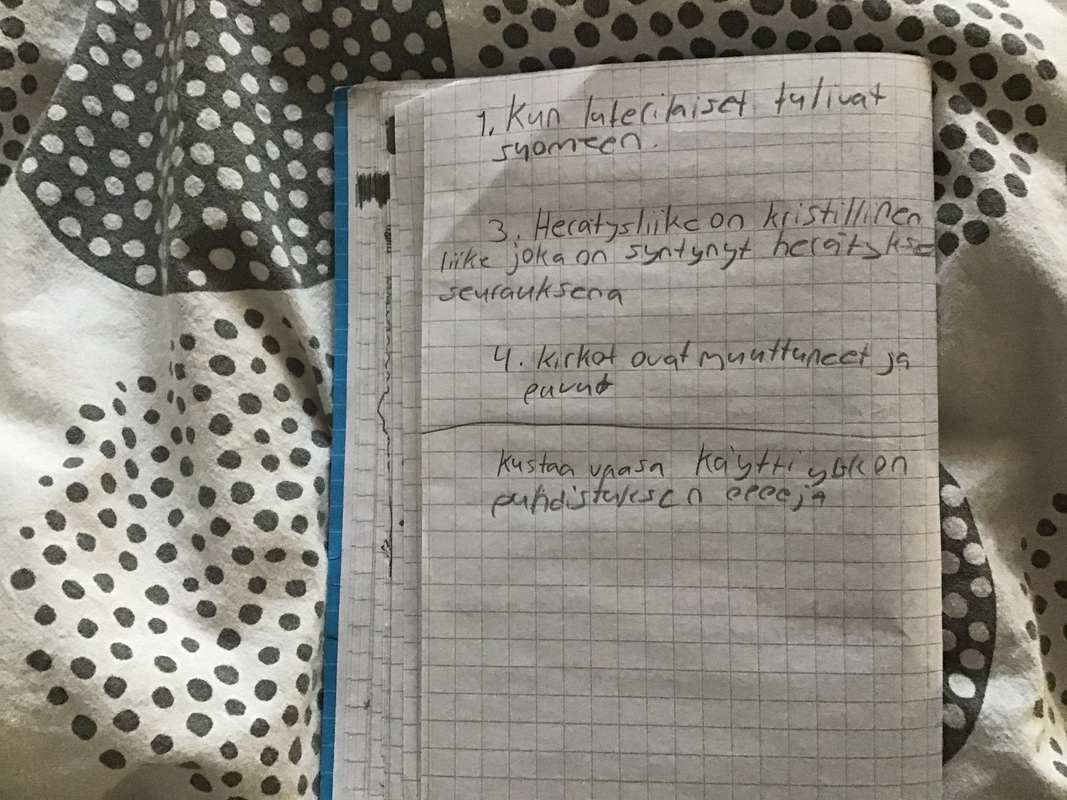 1. Kun luterilaiset tulivat
suomeen.
3. Herätysliike on kristillinen
liike joka on syntynyt herätykse
seurauksena
4. kirkot ovat muuttuneet ja
puvut
kustaa vaasa käytti uskon
puhdistuksen